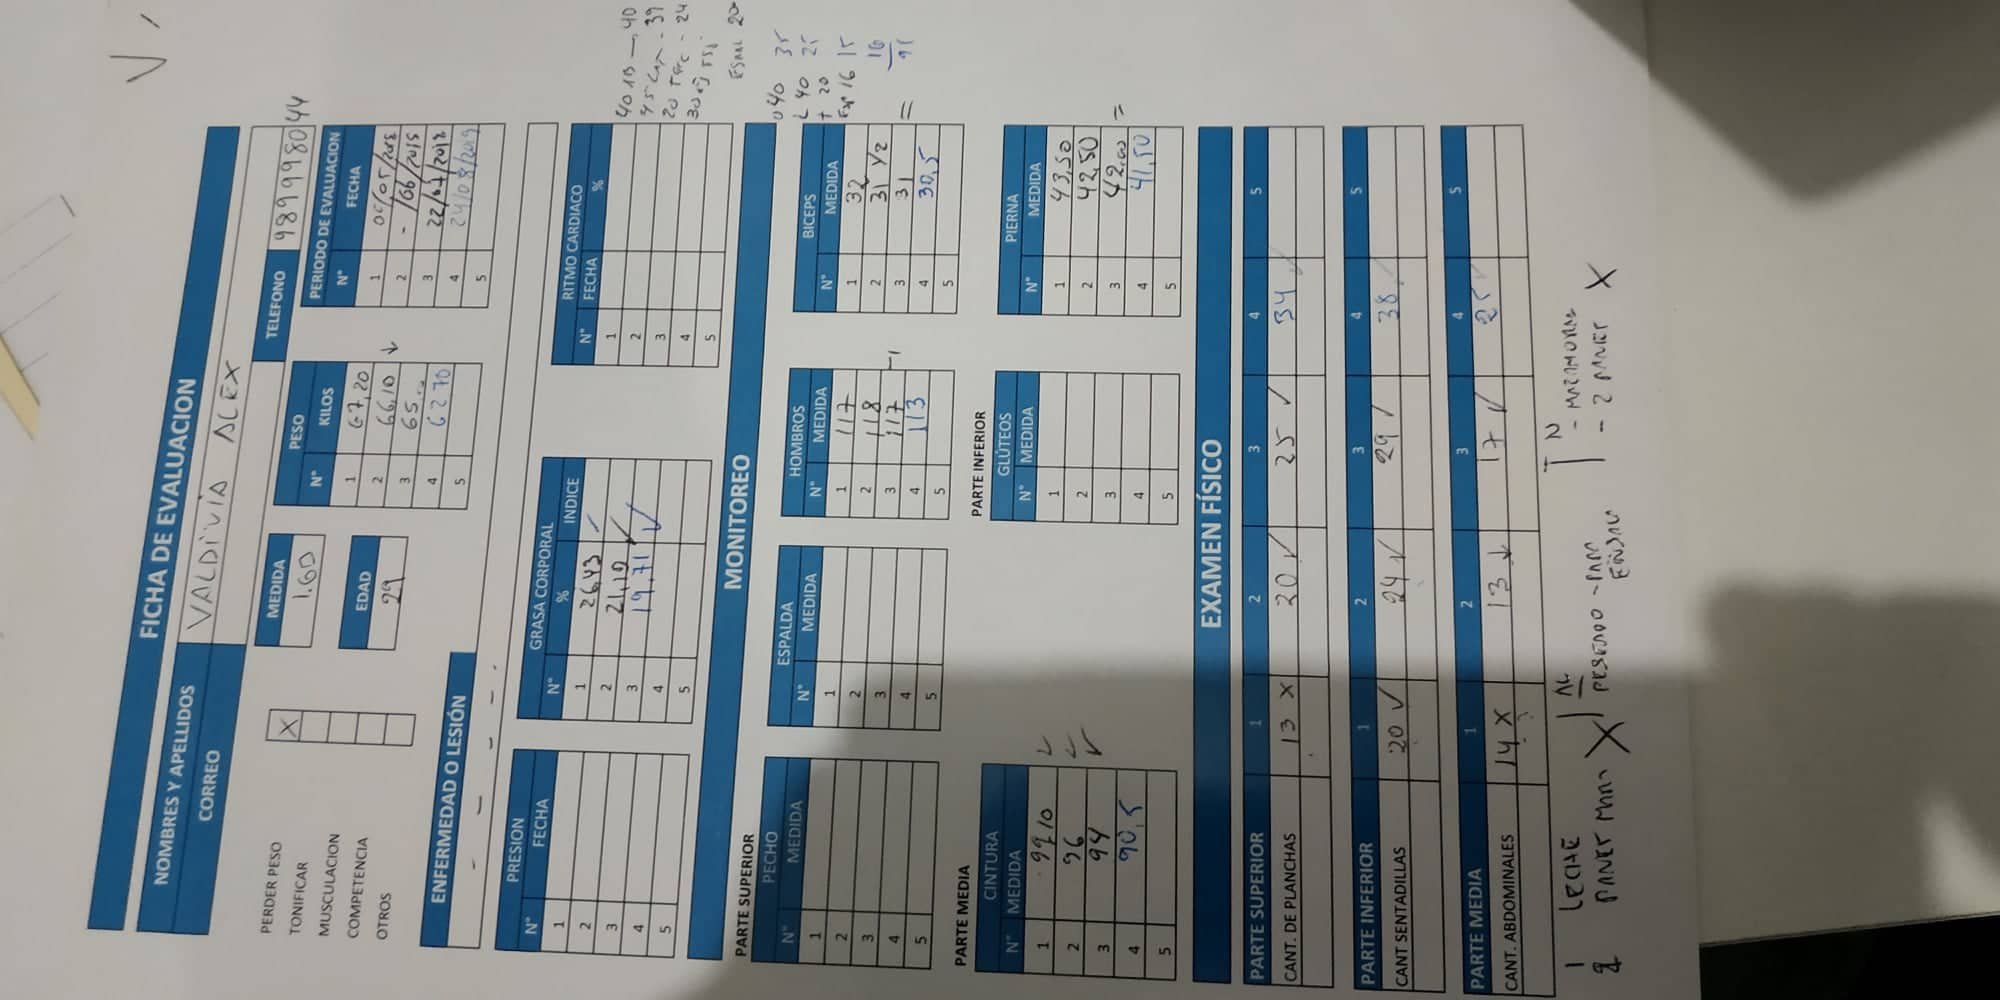 FICHA DE EVALUACION
NOMBRES Y APELLIDOS VALDIVIA ALEX
CORREO TELEFONO 989999804 4
PERDER PESO X
TONIFICAR
MUSCULACION
COMPETENCIA
OTROS
MEDIDA
1.60
EDAD
29
PESO
N° KILOS
1 67,20
2 66,10
3 65.
4 62,70
5
PERIODO DE EVALUACION
N° FECHA
1 05/05/2018
2 - /06/2018
3 22/07/2018
4 24/08/2019
5
ENFERMEDAD O LESIÓN
PRESION
N° FECHA
1
2
3
4
5
GRASA CORPORAL
N° % INDICE
1 26,43
2 21,10
3 19,71
4
5
RITMO CARDIACO
N° FECHA %
1
2
3
4
5
MONITOREO
PARTE SUPERIOR
PECHO
N° MEDIDA
1
2
3
4
5
ESPALDA
N° MEDIDA
1
2
3
4
5
HOMBROS
N° MEDIDA
1 117
2 118
3 117
4 113
5
BICEPS
N° MEDIDA
1 32
2 31 1/2
3 31
4 30,5
5
PARTE MEDIA
CINTURA
N° MEDIDA
1 99,10
2 96
3 94
4 90,5
5
PARTE INFERIOR
GLÚTEOS
N° MEDIDA
1
2
3
4
5
PIERNA
N° MEDIDA
1 43,50
2 42,50
3 42.00
4 41,50
5
EXAMEN FÍSICO
PARTE SUPERIOR 1 2 3 4 5
CANT. DE PLANCHAS 13 X 20 ✓ 25 ✓ 34 ✓
PARTE INFERIOR 1 2 3 4 5
CANT SENTADILLAS 20 ✓ 24 ✓ 29 ✓ 38 ✓
PARTE MEDIA 1 2 3 4 5
CANT. ABDOMINALES 14 X 13 ↓ 17 ✓ 25 ✓
1 LECHE